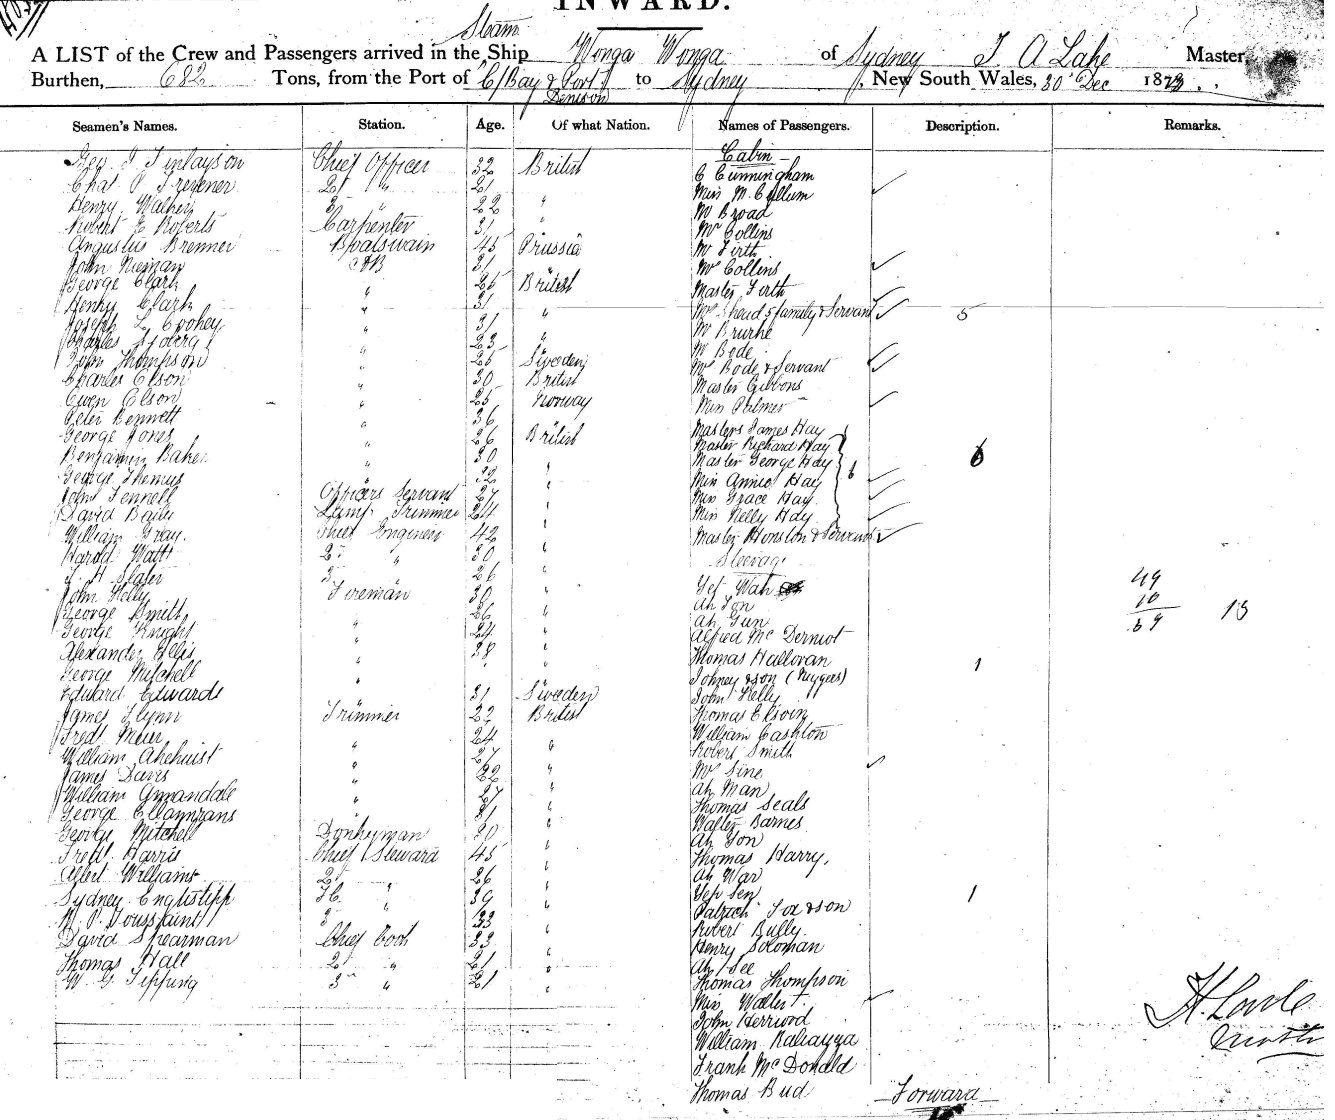 INWARD.
Steam
A LIST of the Crew and Passengers arrived in the Ship Wonga Wonga of Sydney T A Lake Master,
Burthen, 682 Tons, from the Port of C/Bay & Port Denison to Sydney, New South Wales, 30 Dec 1873
Seamen's Names. Station. Age. Of what Nation. Names of Passengers. Description. Remarks.
Geo. I Finlayson Chief Officer 32 British
Chas P Trevener 2 " 21 "
Henry Walker 3 " 22 "
Robert E Roberts Carpenter 31 "
Augustus Brenner Boatswain 45 Prussia
John Nieman AB 31 "
George Clark " 25 British
Henry Clark " 31
Joseph L Coohey " 31 "
Charles Syberg " 23 "
John Thompson " 25 Sweden
Charles Olson " 30 British
Owen Olson " 25 Norway
Peter Bennett " 36
George Jones " 26 British
Benjamin Baker " 30
George Themus " 32 "
John Fennell Officers Servant 27 "
David Baily Lamp Trimmer 24
William Gray. Chief Engineer 42 "
Harold Watt 2 " 30 "
J. H Slater 3 " 26 "
John Kelly Fireman 30 "
George Smith 26 "
George Knight " 24 "
Alexander Helis " 38 "
George Mitchell "
Edward Edwards " 31 Sweden
James Flynn Trimmer 22 British
Fredk Meier 24
William Ahehurst " 27 "
James Davis " 22 "
William Annandale " 27 "
George " 31 "
George Mitchell Donkeyman 30 "
Fredk Harris Chief Steward 45 "
Albert Williams 2 26 "
Sydney F.C. " 39 "
W. P. Toussaint 3 " 33
David Spearman Chief Cook 33 "
Thomas Hall 2 " 21 "
W. G Tipping 3 " 21 "
Cabin
C Cunningham
Miss McCullum
Mr Broad
Mr Collins
Mr Firth
Mrs Collins
Master Firth
Mrs Shead 5 family & Servant 5
Mr Brurke
Mr Bode
Mrs Bode & Servant
Master Gibbons
Miss Palmer
Masters James Hay
Master Richard Hay
Master George Hay 6 6
Miss Annie Hay
Miss Grace Hay
Miss Nelly Hay
Master Honston & Servant
Steerage
Yet Wah
Ah Ton
Ah Gun
Alfred McDermot
Thomas Hallovan 1
Johney & son
John Kelly
Thomas
William Cashton
Robert Smith
Mrs Sine
Ah Man
Thomas Seals
Walter Barnes
Ah Yon
Thomas Harry,
Ah War
Yep Sen
Patrick Fox & son 1
Robert Bully
Henry Soloman
Ah See
Thomas Thompson
Miss Wallest
John Herriord
William
Frank McDonald
Thomas Bud
Forward
49
10
59 13